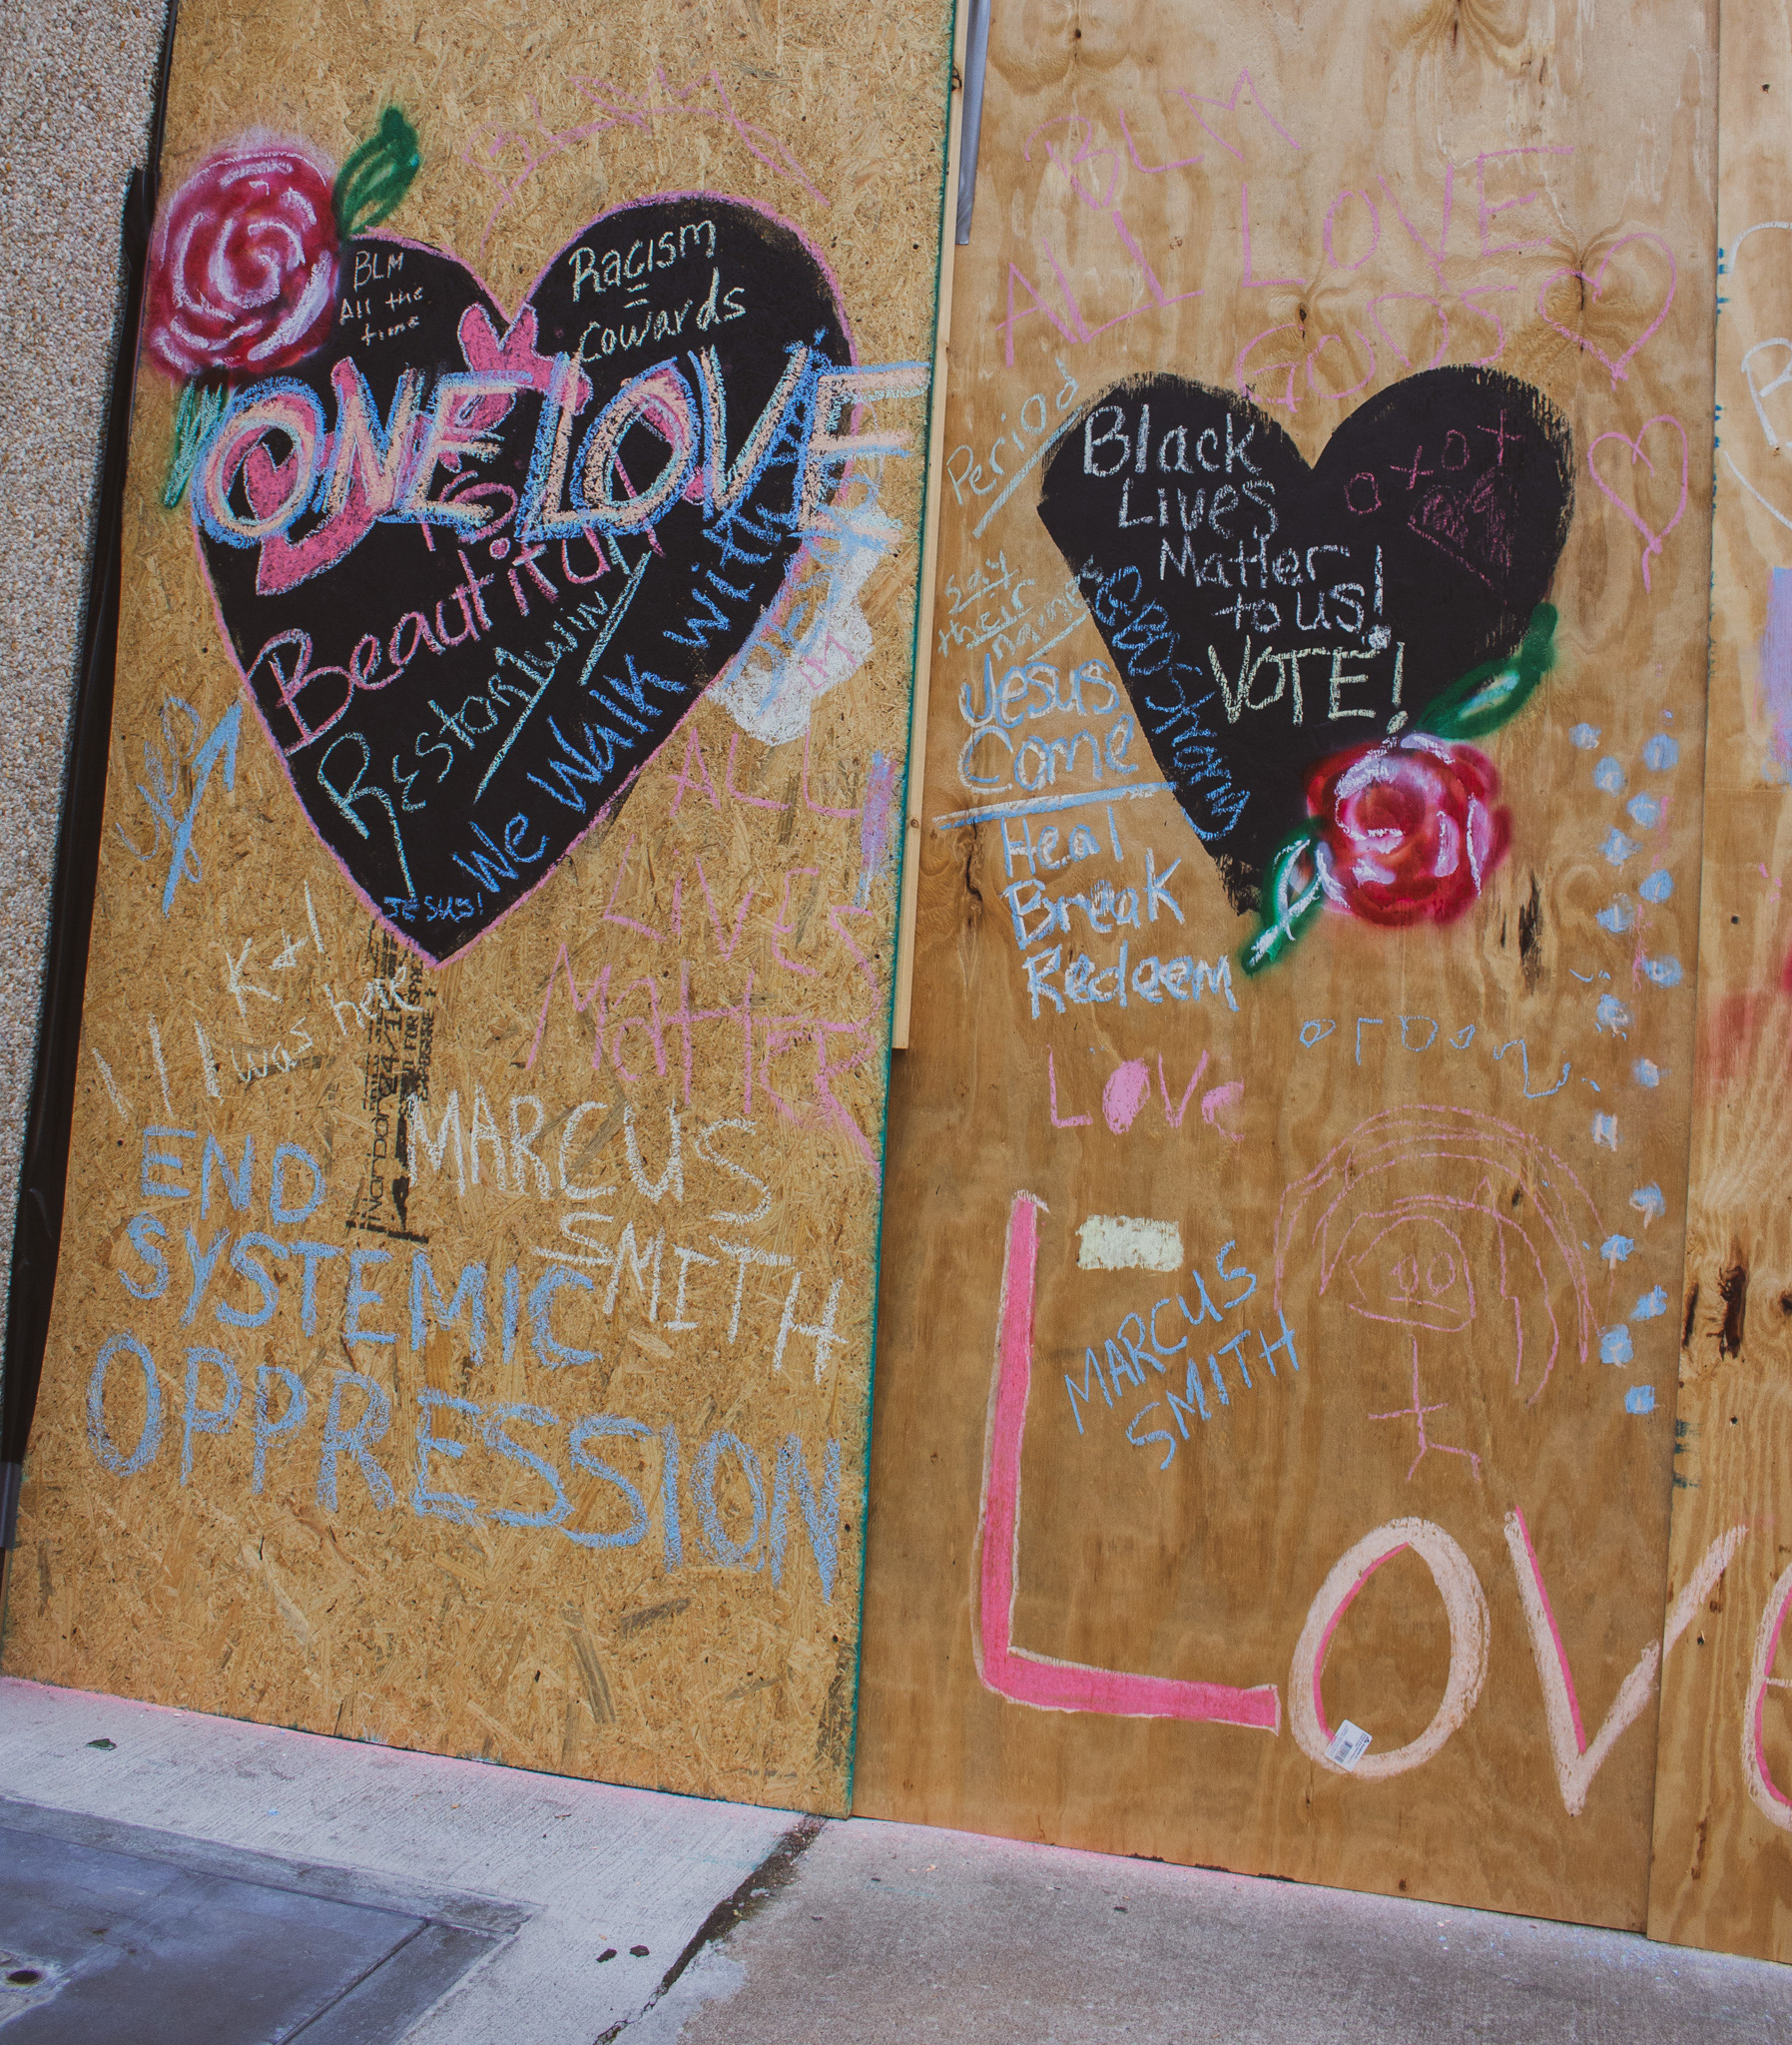 BLM
BLM
All the
time
Racism
=
cowards
ONE LOVE
is
Beautiful
We Walk with
JESUS!
yep
ALL
LIVES
Matter
Kal
was here
MARCUS
SMITH
END
SYSTEMIC
OPPRESSION
BLM
ALL LOVE
GODS
Period
say
their
names
Black
Lives
Matter
to us!
VOTE!
oxox
Jesus
Come
Heal
Break
Redeem
Love
MARCUS
SMITH
LOVe